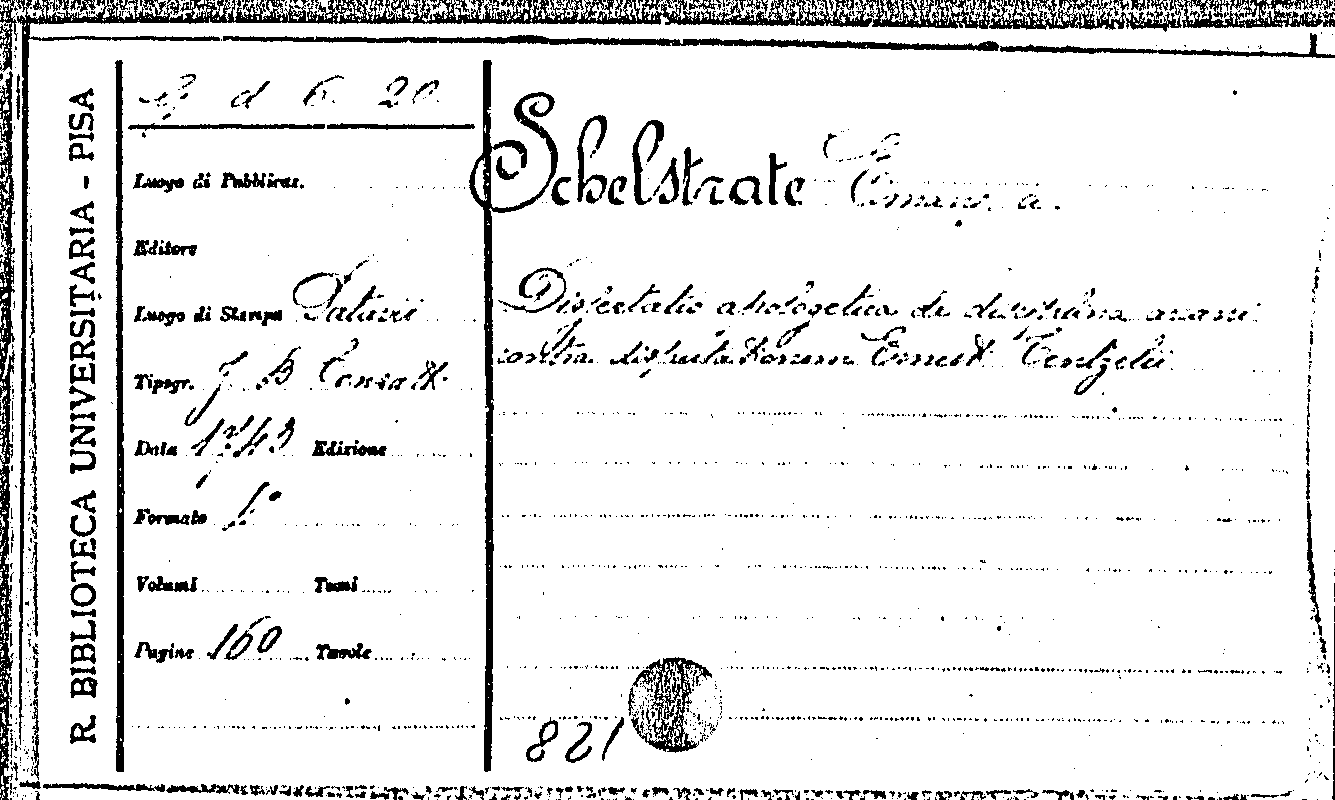 R. BIBLIOTECA UNIVERSITARIA - PISA
d 6. 20
Luogo di Pubblicaz.
Editore
Luogo di Stampa Patavii
Tipogr. J B Conzatti
Data 1743 Edizione
Formato
Volumi Tomi
Pagine 160 Tavole
Schelstrate Eman. a.
Dissertatio apologetica de disciplina arcani
contra disputationem Ernesti Tentzelii
821